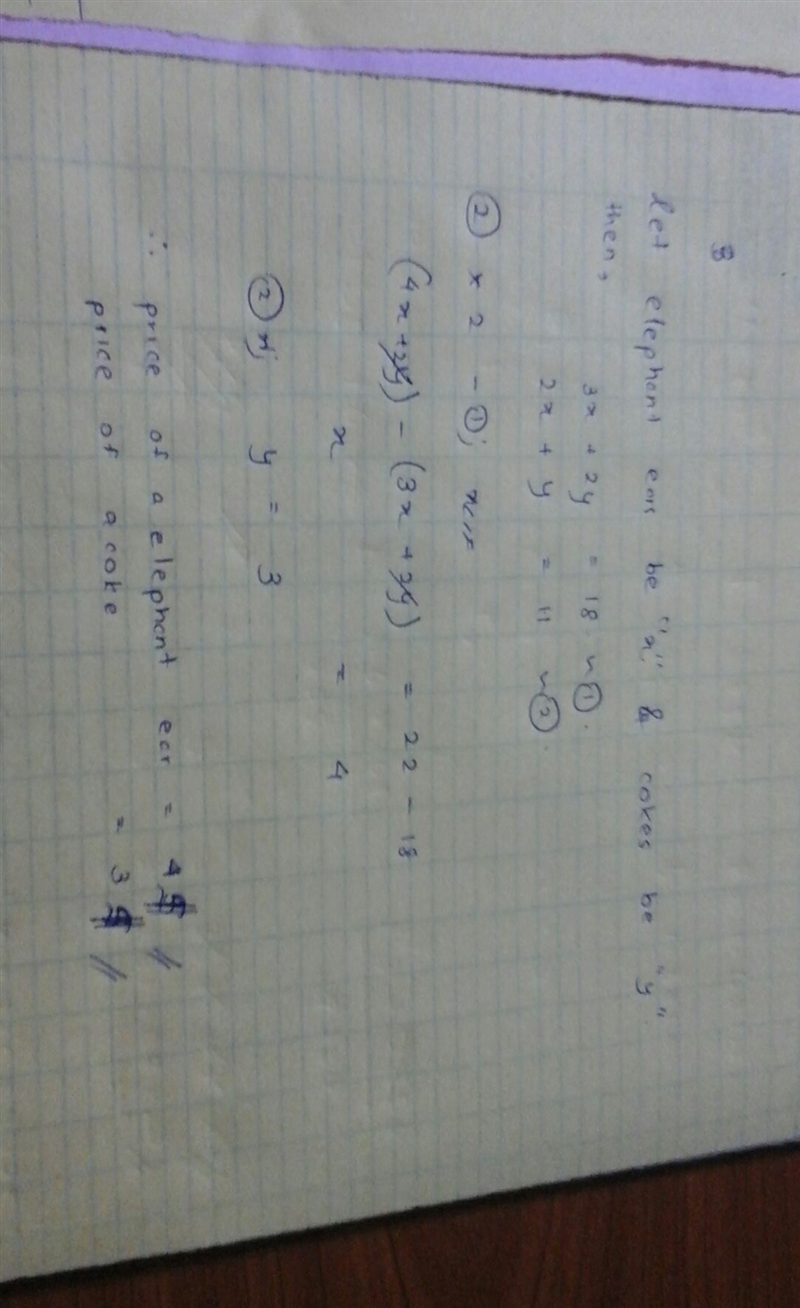 Let elephant ears be "x" & cokes be "y"
then,
3x + 2y = 18 ①
2x + y = 11 ②
② x 2 - ①;
(4x + 2y) - (3x + 2y) = 22 - 18
x = 4
② y = 3
∴ price of a elephant ear = 4$ //
price of a coke = 3$ //